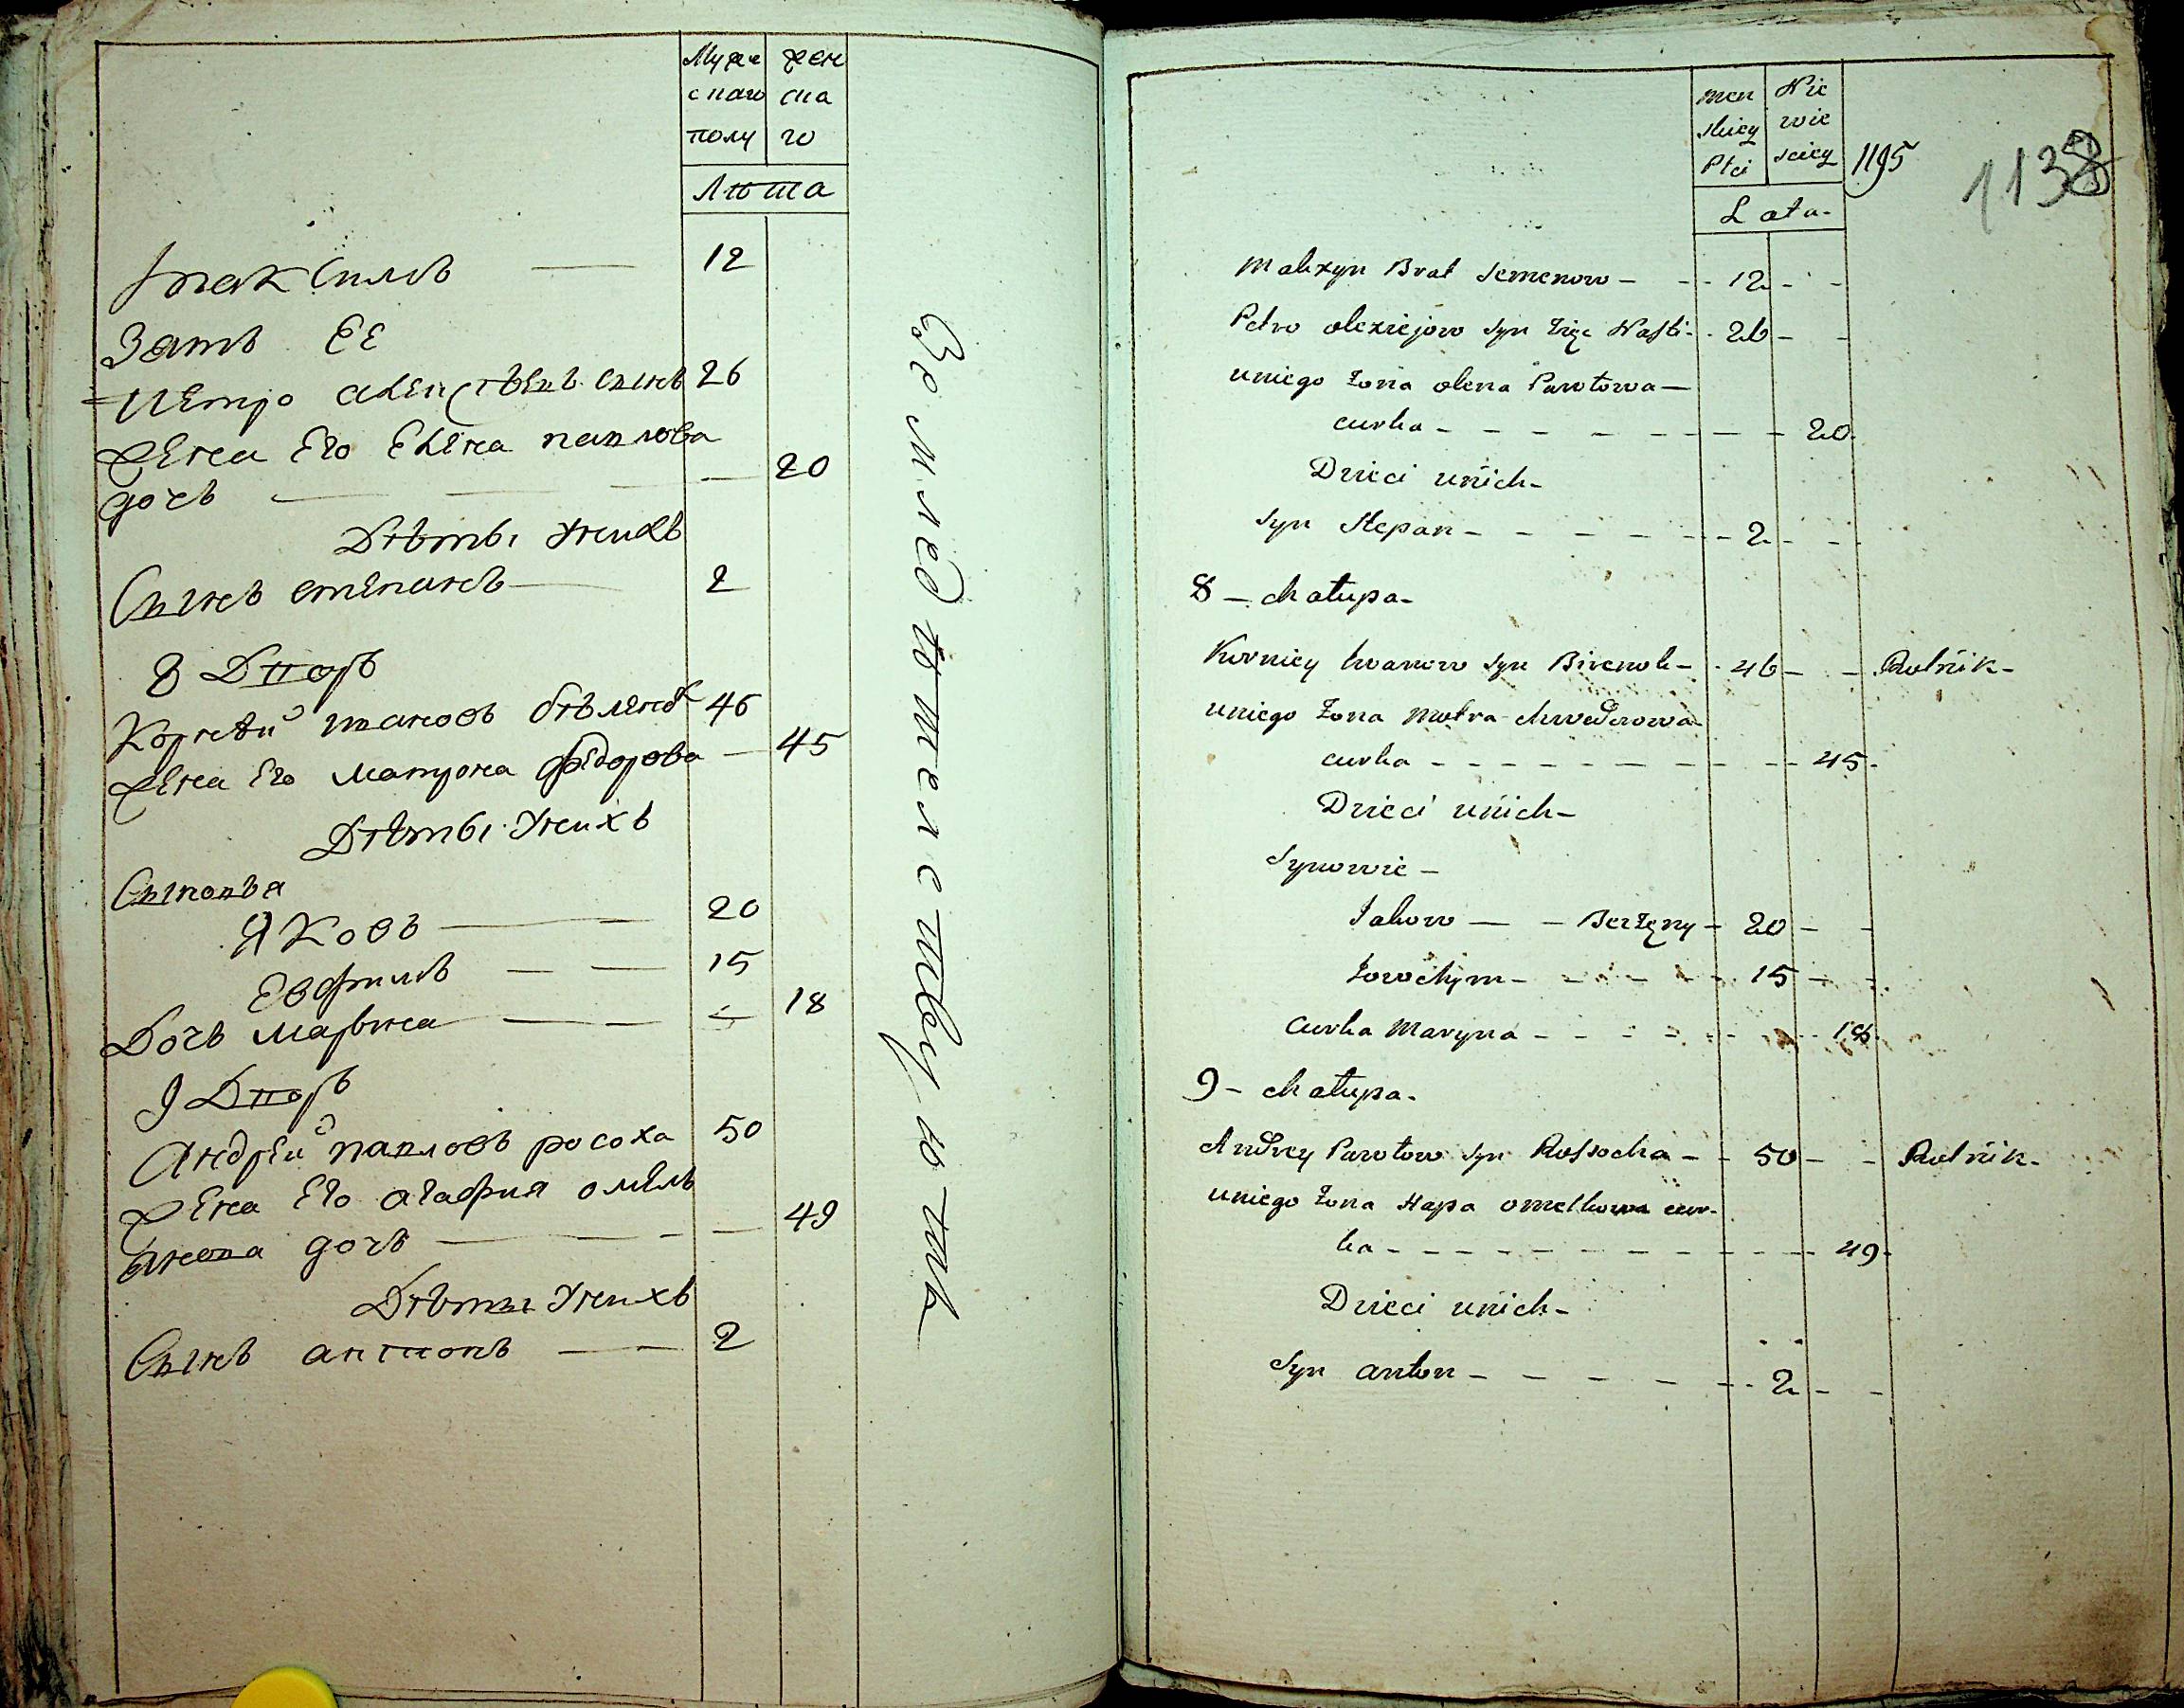 Мужеска полу
женскаго
Лѣта
Максимъ — 12
Зять Ее
Петро алексѣевъ сынъ 26
Жена Его Елена павлова
дочь — — — — 20
Дѣты Унихъ
Сынъ степанъ — 2
8 Дворъ
Корнѣй ивановъ бѣленокъ 46
Жена Его матрона федорова — 45
Дѣты Унихъ
Сыновья
Яковъ — — 20
Евфимъ — — 15
Дочь марына — — — 18
9 Дворъ
Андрѣй павловъ росоха 50
Жена Его агафия омель
янова дочь — — — — 49
Дѣты Унихъ
Сынъ антонъ — — 2
Земледѣтелствуютъ
men
skiey
Płci
Nie
wie
sciey
1195
1138
Lata.
Malxym Brat Semenow — - - 12 - - -
Petro olexiejow Syn Zięc Nasti - - 26 - -
uniego żona olena Pawłowa —
curka - - - - - - - - - 20.
Dzieci unich -
Syn Stepan - - - - - - - 2 - - -
8 — chałupa -
Kornicy Iwanow Syn Bilenok - - 46 - - Rolnik -
uniego żona Motra chwedorowa
curka - - - - - - - - - - 45 -
Dzieci unich -
Synowie -
Jakow — - Berżęny - 20 - -
Jowchym - - - - - - 15 - -
Curka Maryna - - - - - - - - 18.
9 - chałupa.
Andrey Pawłow Syn Rossocha - - 50 - - Rolnik.
uniego żona Hapa omelkowa cur-
ka - - - - - - - - - - - 49 -
Dzieci unich -
Syn anton - - - - - - 2 - -